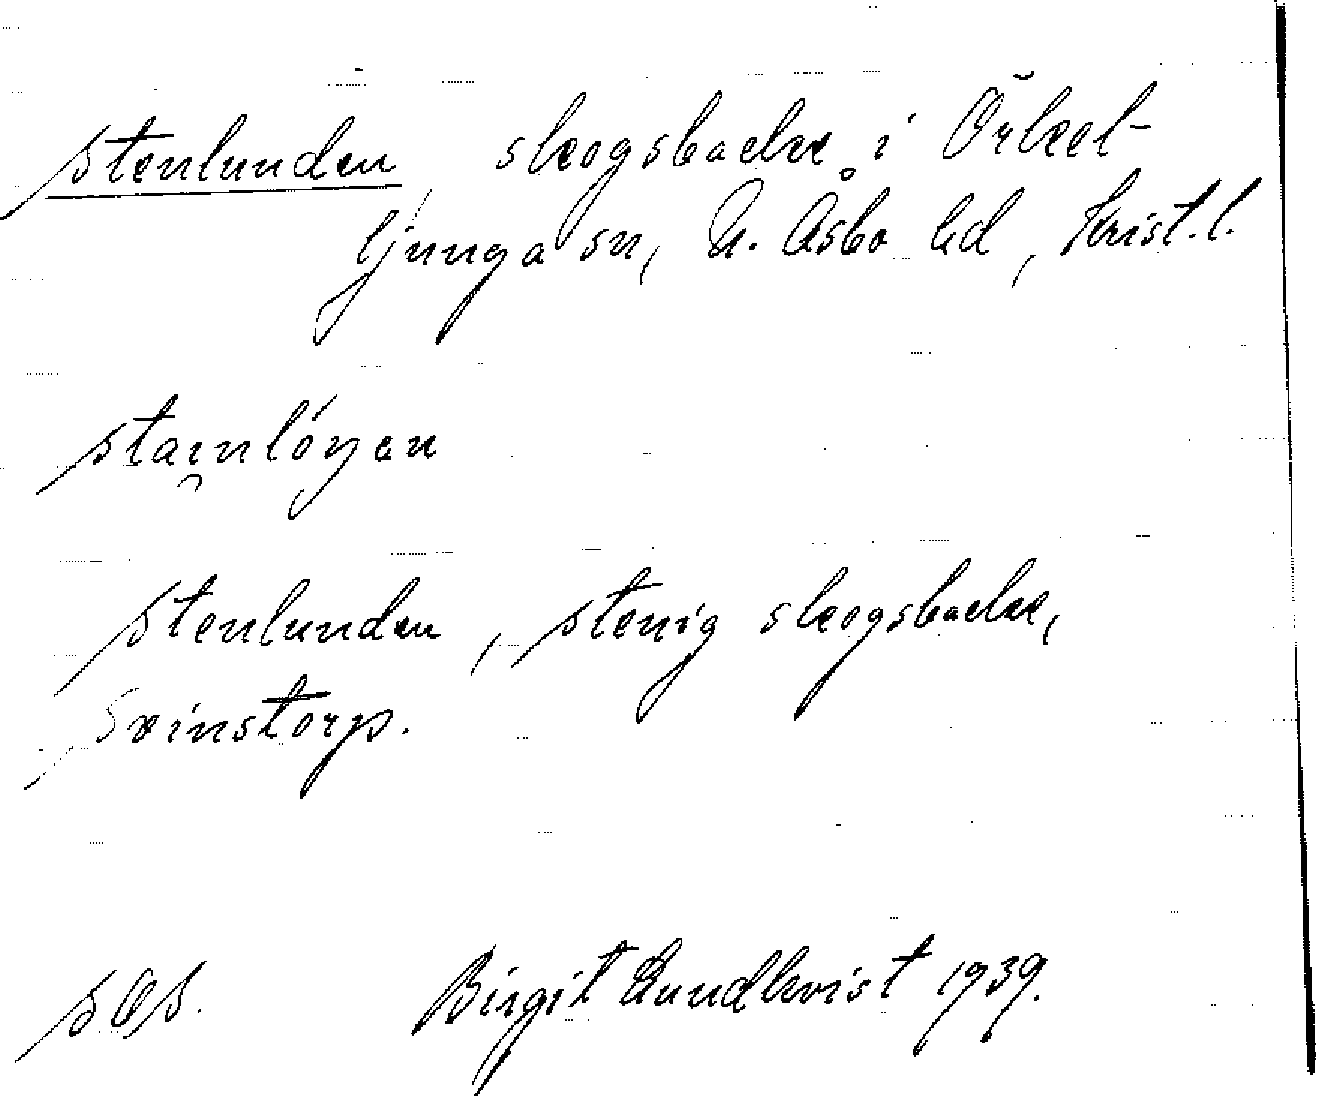 Stenlunden, skogsbacke i Örkel-
ljunga sn, N. Åsbo hd, Krist.l.
stai̯nlóŋen
Stenlunden, stenig skogsbacke,
Svinstorp.
SOS. Birgit Lundkvist 1939.